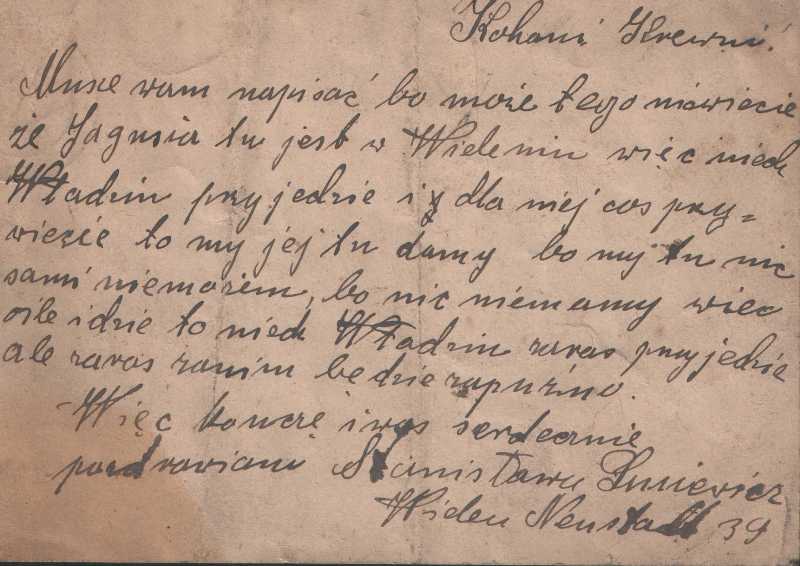 Kohani Krewni!
Musze wam napisać bo może tego niewiecie
że Jagusia tu jest w Wideniu więc niech
Władziu przyjedzie i dla niej cos przy=
wiezie to my jej tu damy bo my tu nic
sami niemożem, bo nic niemamy więc
oile idzie to niech Władziu zaras przyjedzie
ale zaras zanim bedzie zapuźno.
Więc koncze i was serdecznie
pozdrawiam Stanisława
Widen Neustadt 39